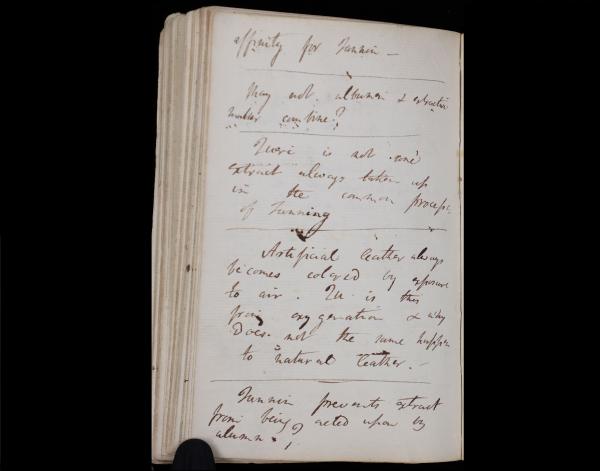 affinity for Tannin —
May not albumen & extractive
matter combine?
Queri is not one
extract always taken up
in the common process
of Tanning
Artificial leather always
becomes colored by exposure
to air. Qu. is this
from oxygenation & why
Does not the same happen
to natural leather. –
Tannin prevents extract
from being acted upon by
alumn ?